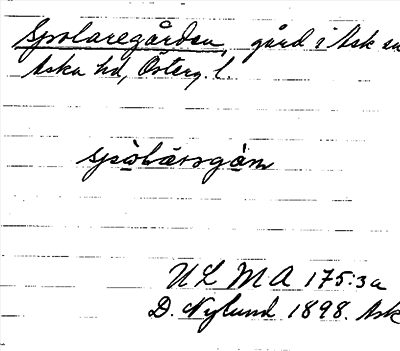 Spolaregården, gård i Ask sn
Aska hd, Österg. l.
spòlàrəgàn
ULMA 175:3a
D. Nylund 1898. Ask